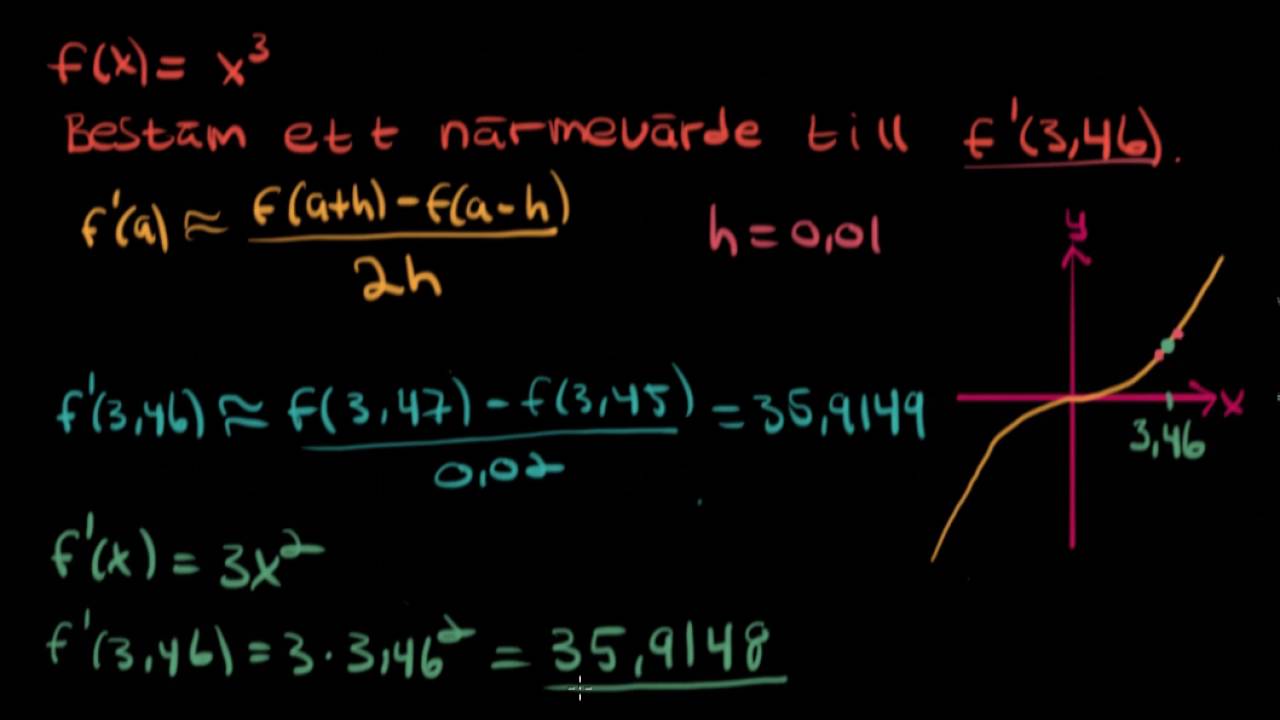 f(x) = x³
Bestäm ett närmevärde till f'(3,46).
f'(a) ≈ (f(a+h) - f(a-h)) / 2h
h = 0,01
f'(3,46) ≈ (f(3,47) - f(3,45)) / 0,02 = 35,9149
y
x
3,46
f'(x) = 3x²
f'(3,46) = 3 · 3,46² = 35,9148